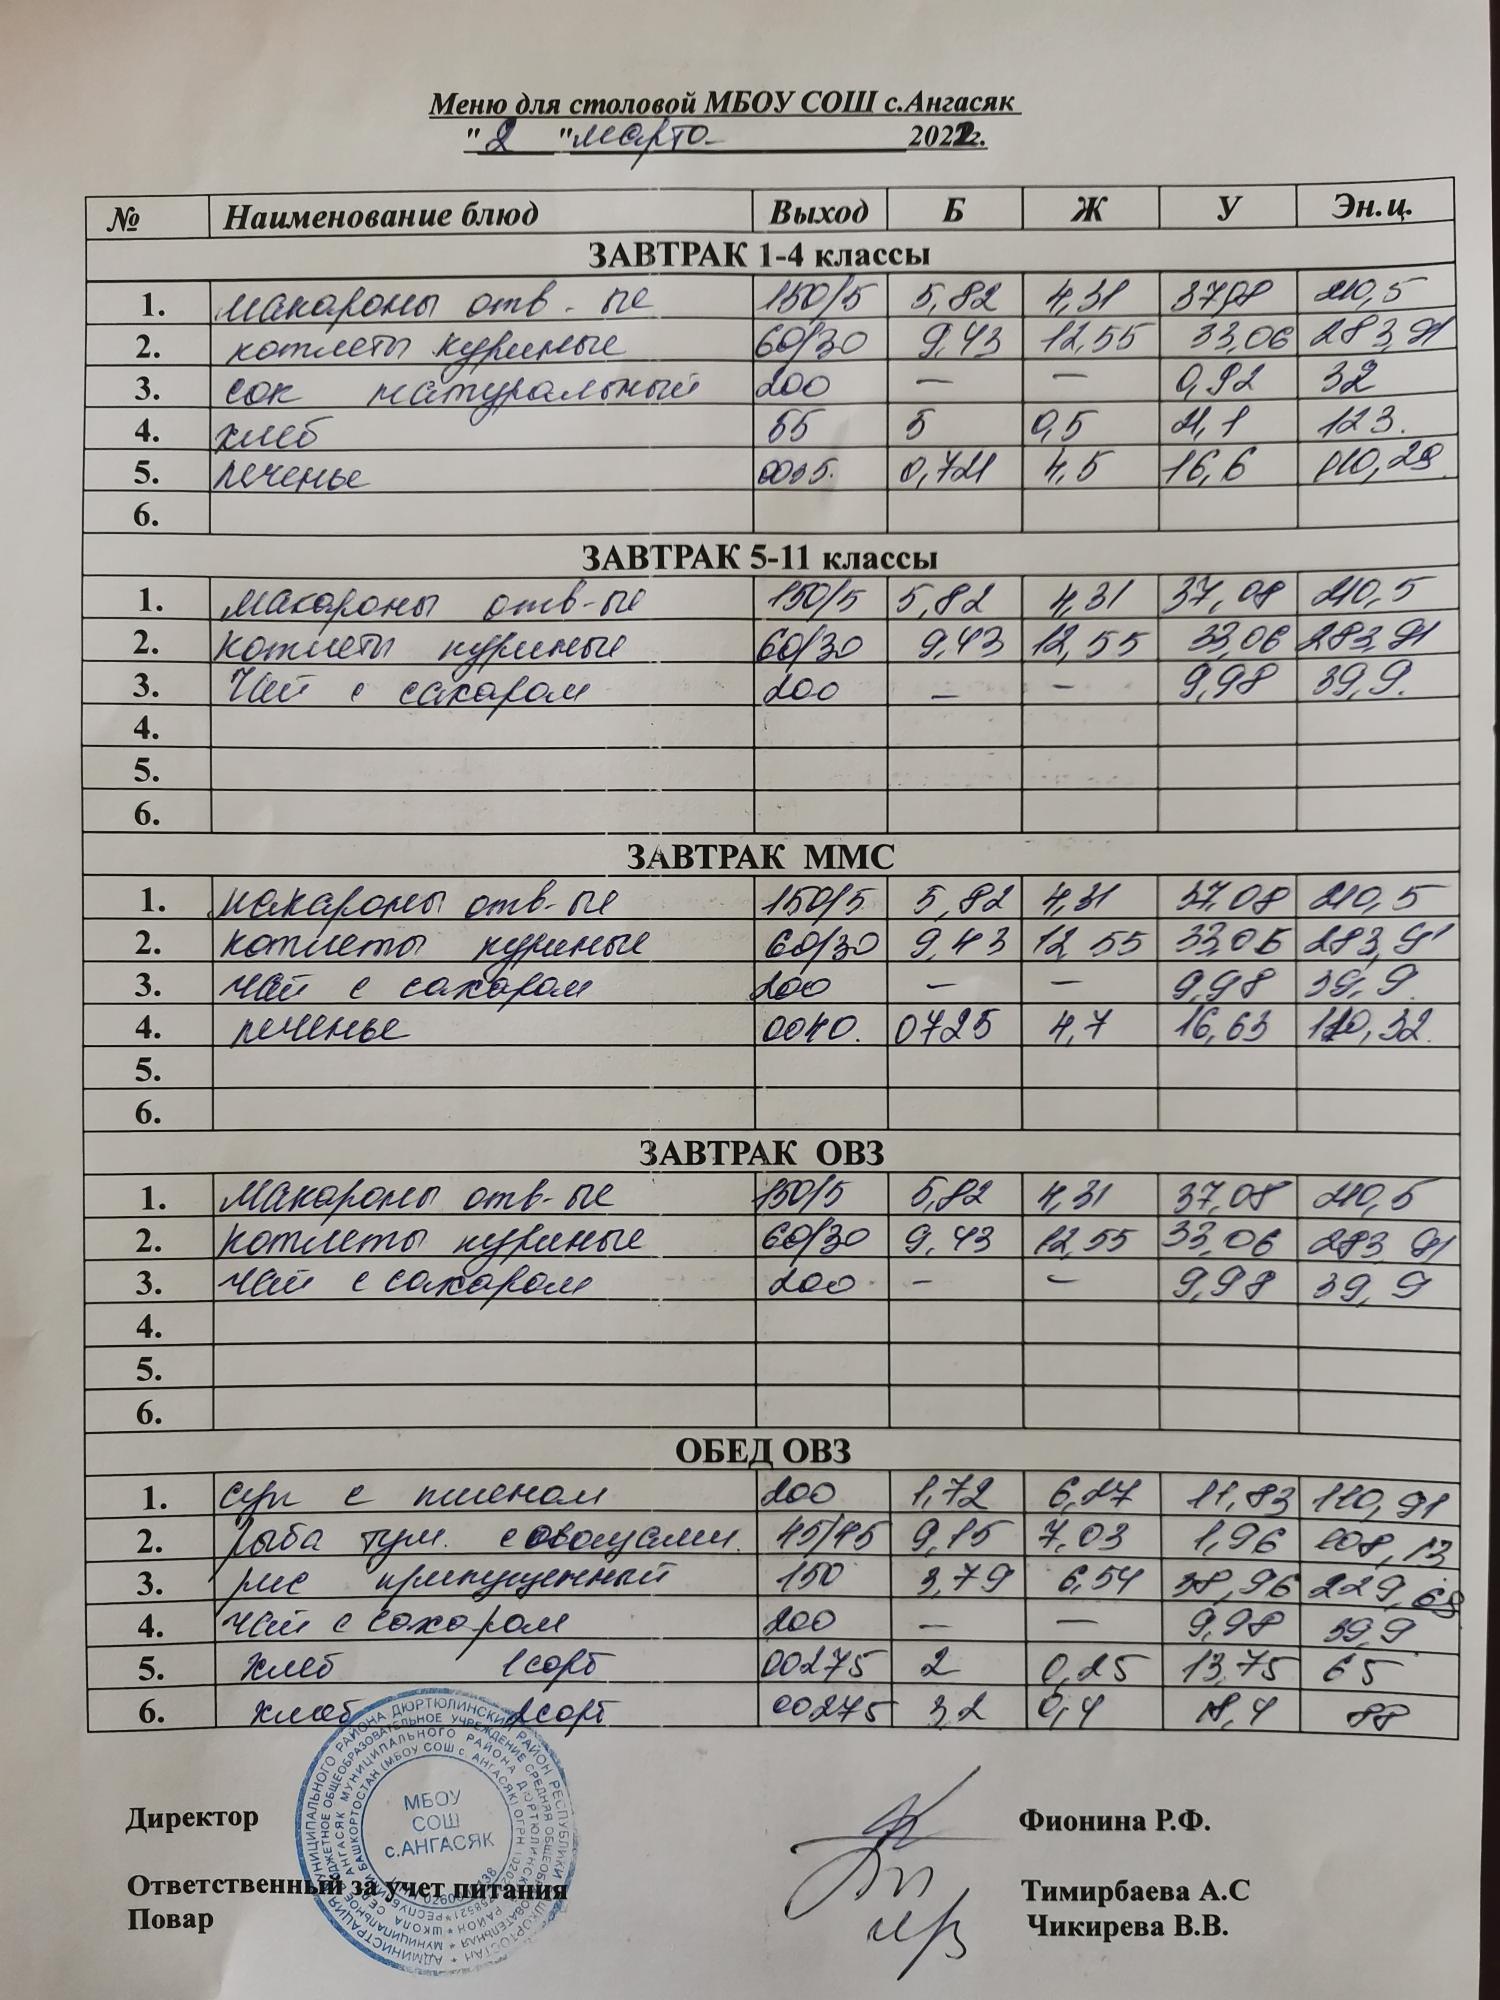 Меню для столовой МБОУ СОШ с.Ангасяк
"2" марта 2022г.
№ Наименование блюд Выход Б Ж У Эн.ц.
ЗАВТРАК 1-4 классы
1. макароны отв-ые 150/5 5,82 4,31 37,08 210,5
2. котлеты куриные 60/30 9,43 12,55 33,06 283,91
3. сок натуральный 200 — — 0,92 32
4. хлеб 55 5 0,5 21,1 123.
5. печенье 0,721 4,5 16,6 110,29
6.
ЗАВТРАК 5-11 классы
1. макароны отв-ые 150/5 5,82 4,31 37,08 210,5
2. котлеты куриные 60/30 9,43 12,55 33,06 283,91
3. Чай с сахаром 200 — — 9,98 39,9.
4.
5.
6.
ЗАВТРАК ММС
1. макароны отв-ые 150/5 5,82 4,31 37,08 210,5
2. котлеты куриные 60/30 9,43 12,55 33,06 283,91
3. чай с сахаром 200 — — 9,98 39,9.
4. печенье 0040. 0725 4,7 16,63 110,32.
5.
6.
ЗАВТРАК ОВЗ
1. Макароны отв-ые 150/5 5,82 4,31 37,08 210,5
2. котлеты куриные 60/30 9,43 12,55 33,06 283,91
3. чай с сахаром 200 — — 9,98 39,9
4.
5.
6.
ОБЕД ОВЗ
1. суп с пшеном 200 1,72 6,27 11,83 110,91
2. рыба туш. с овощами. 45/45 9,15 7,03 1,96 108,13
3. рис припущенный 150 3,79 6,54 38,96 229,68
4. чай с сахаром 200 — — 9,98 39,9
5. хлеб 1сорт 00275 2 0,25 13,75 65
6. хлеб 2сорт 00275 3,2 0,4 18,4 88
МБОУ
СОШ
с.АНГАСЯК
Директор Фионина Р.Ф.
Ответственный за учет питания Тимирбаева А.С
Повар Чикирева В.В.